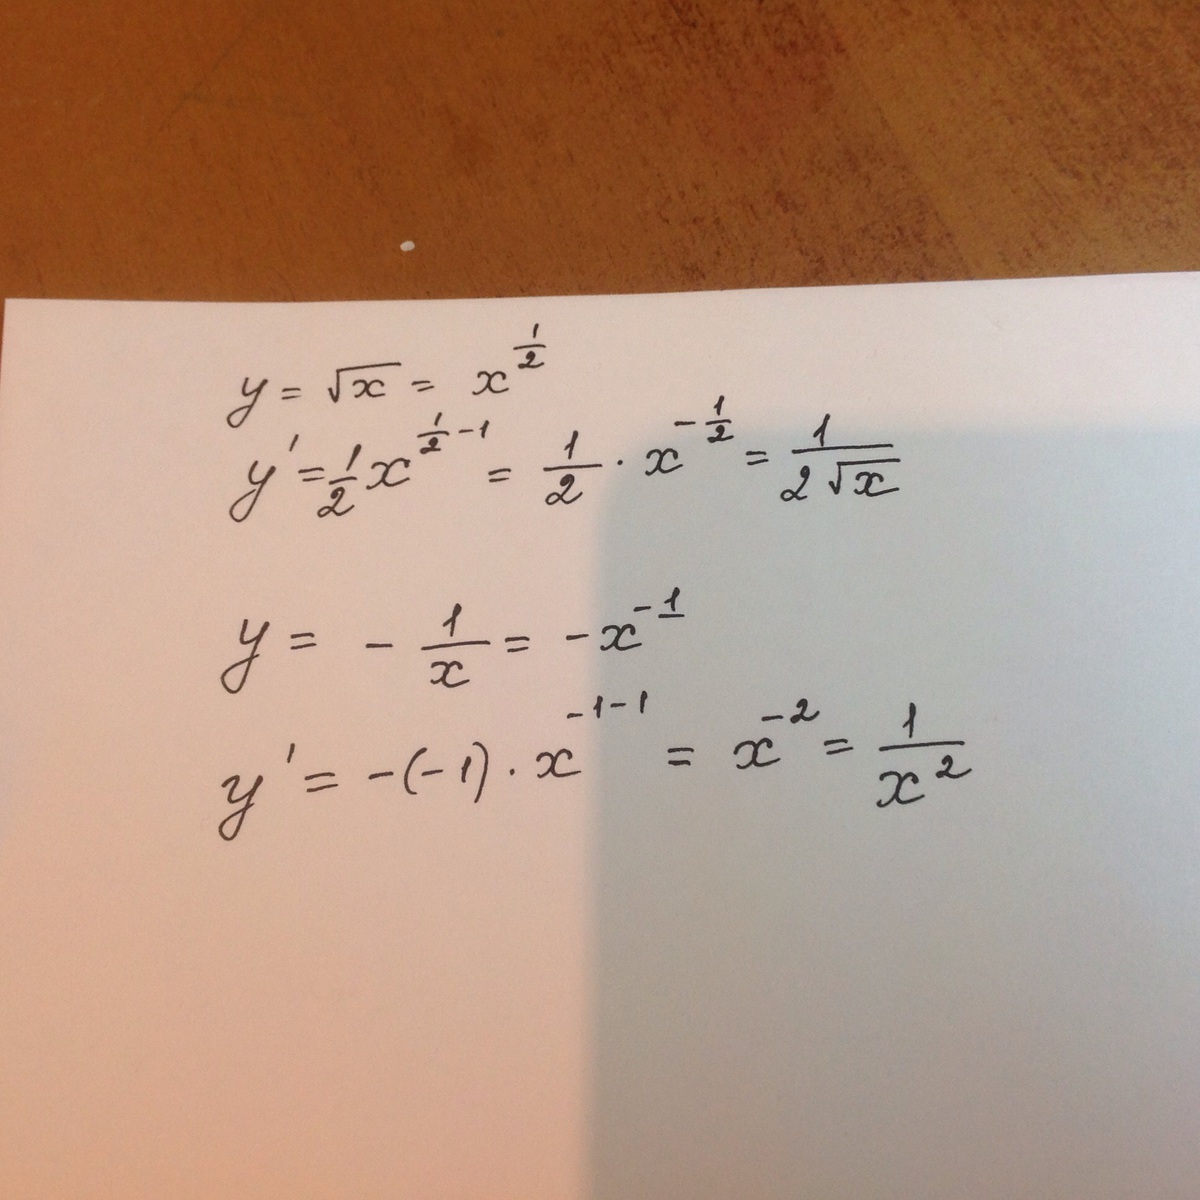 y = √x = x^(1/2)
y' = 1/2 x^(1/2 - 1) = 1/2 · x^(-1/2) = 1/(2√x)
y = - 1/x = -x^(-1)
y' = -(-1) · x^(-1-1) = x^(-2) = 1/x^2